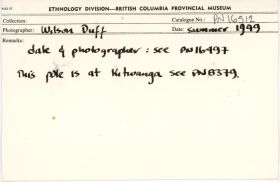 ETHNOLOGY DIVISION—BRITISH COLUMBIA PROVINCIAL MUSEUM
Collection: Catalogue No.: PN 16512
Photographer: Wilson Duff Date: summer 1949
Remarks:
date & photographer : see PN 16497
This pole is at Kitwanga see PN 8379.